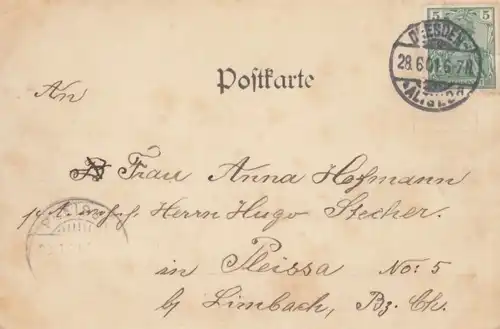 5 5
DRESDEN-
28.6.01.6-7N.
ALTST.
Postkarte
An
Frau Anna Hofmann
Herrn Hugo Stecher.
in Pleissa No: 5
b/ Limbach, Bz. Ch.